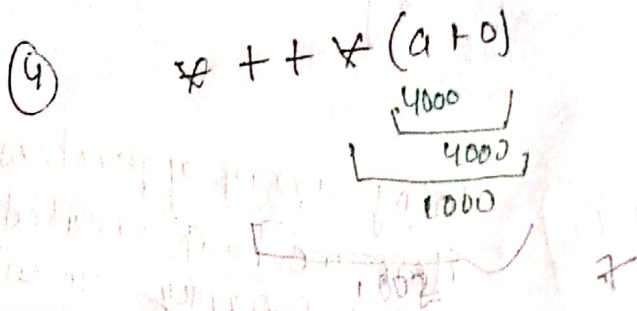 ④ * + + * (a + 0)
4000
4000
1000
1002
7